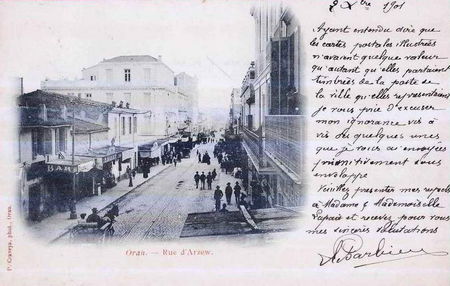 8 Xbre 1901
Ayant entendu dire que
les cartes postales illustrées
n'avaient quelque valeur
qu'autant qu'elles partaient
timbrées de la poste de
la ville qu'elles représentaient
je vous prie d'excuser
mon ignorance vis à
vis de quelques unes
que je vous ai envoyées
primitivement sous
enveloppe
Veuillez présenter mes respects
à Madame & Mademoiselle
et recevez pour vous
mes sincères salutations
BAR
Oran. — Rue d'Arzew.
phot., Oran.